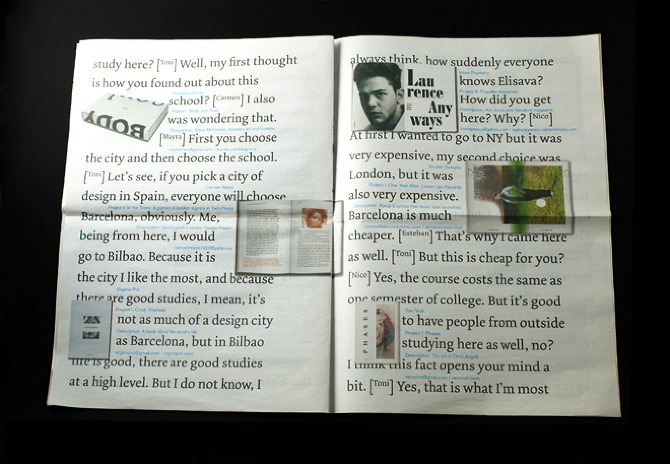 study here? [Toni] Well, my first thought
is how you found out about this
school? [Carmen] I also
was wondering that.
[Mayra] First you choose
the city and then choose the school.
[Toni] Let's see, if you pick a city of
design in Spain, everyone will choose
Barcelona, obviously. Me,
being from here, I would
go to Bilbao. Because it is
the city I like the most, and because
there are good studies, I mean, it's
not as much of a design city
as Barcelona, but in Bilbao
life is good, there are good studies
at a high level. But I do not know, I
BODY
Virginia Pol
Project 1: Cindy Sherman
always think, how suddenly everyone
knows Elisava?
How did you get
here? Why? [Nico]
At first I wanted to go to NY but it was
very expensive, my second choice was
London, but it was
also very expensive.
Barcelona is much
cheaper. [Esteban] That's why I came here
as well. [Toni] But this is cheap for you?
[Nico] Yes, the course costs the same as
one semester of college. But it's good
to have people from outside
studying here as well, no?
I think this fact opens your mind a
bit. [Toni] Yes, that is what I'm most
Lau
rence
Any
ways
PHASES
Project 1: Phases